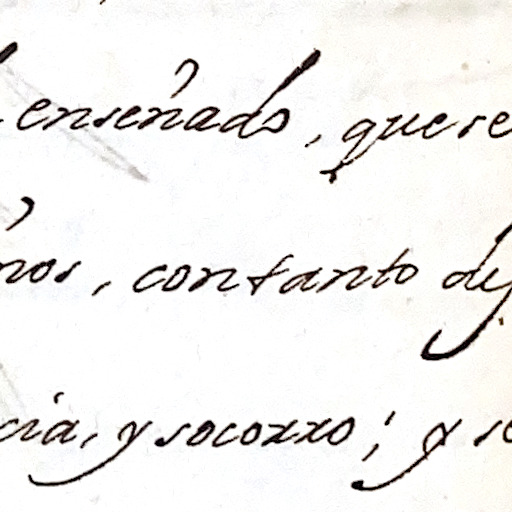 enseñado, que se
ños, con tanto de
cia, y socorro; y se